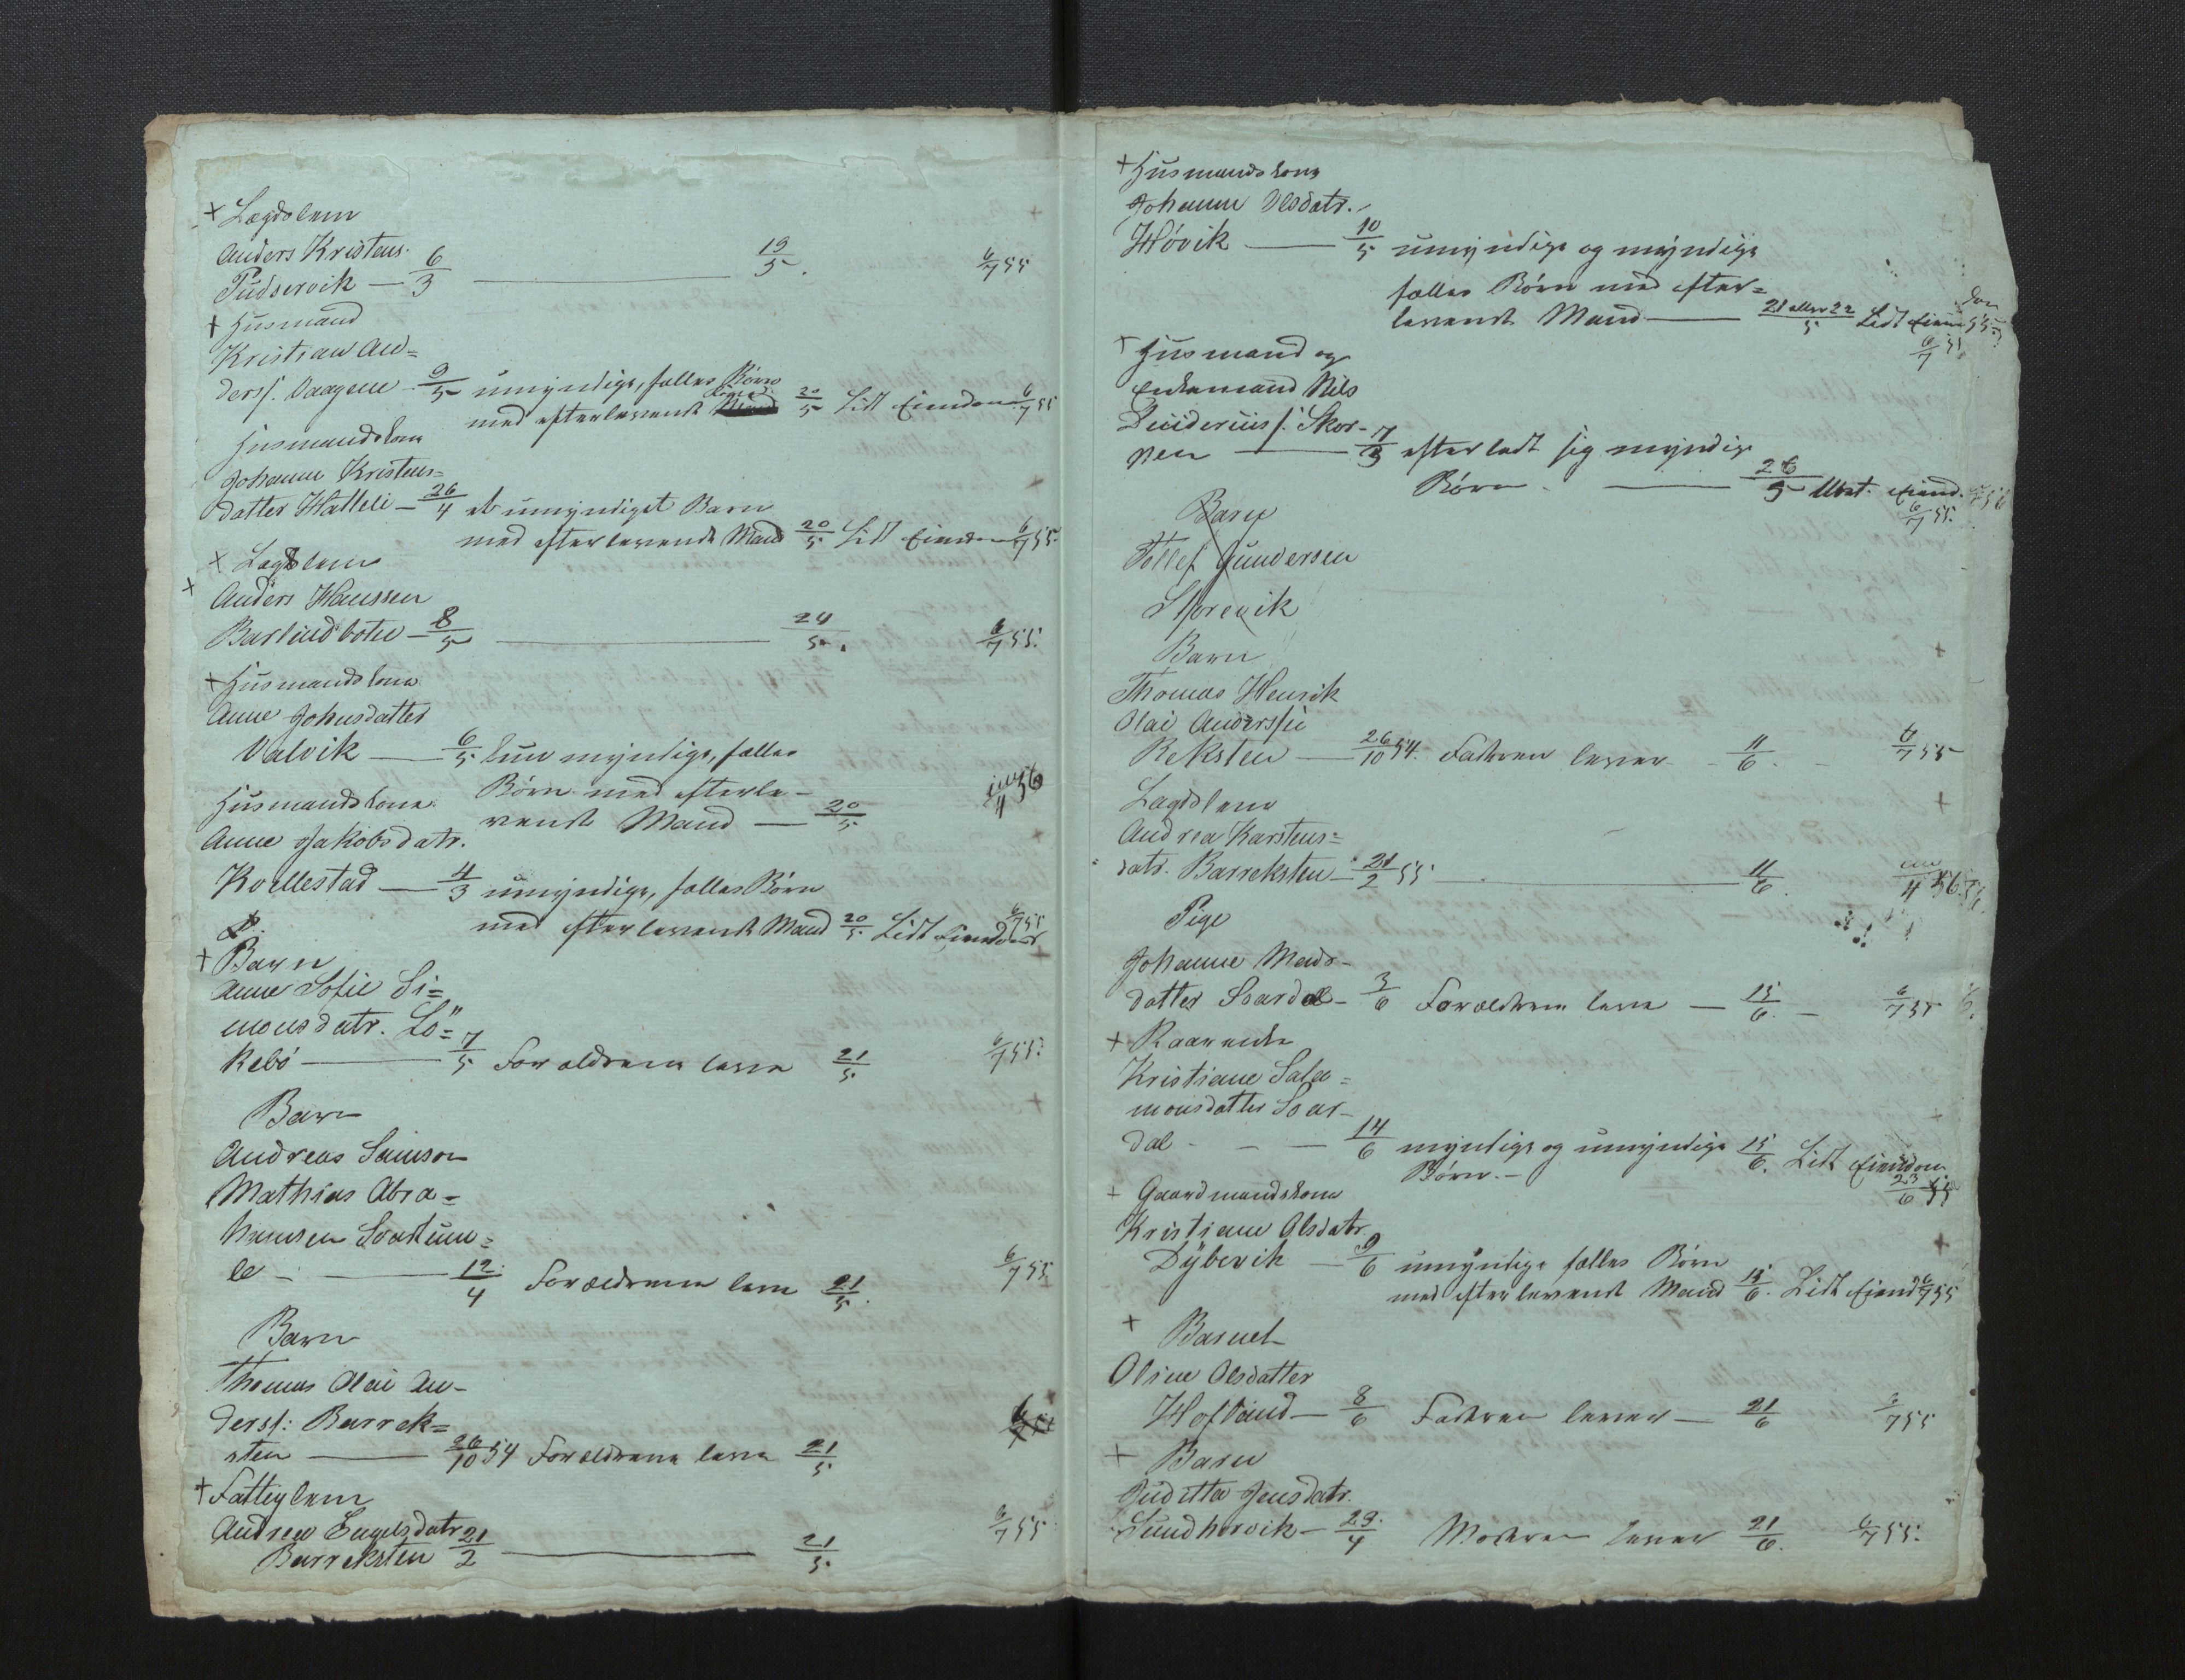 + Lægdslem
Anders Kristens.
Pudservik — 6/3 — 19/5. 6/7 55
+ Husmand
Kristian An=
derss. Vaagene - 9/5 umyndige, fælles Børn
med efterlevende Kone 20/5 Lidt Eiendom 6/7 55
Husmandskone
Johanne Kristens=
datter Hatleli — 26/4 et umyndiget Barn
med efterlevende Mand 20/5 Lidt Eiendom 6/7 55.
+ Lægdslem
+ Anders Hanssen
Barlindbotn — 8/5 — 24/5. 6/7 55.
+ Husmandskone
Anne Johnsdatter
Valvik — 6/5 kun myndige, fælles
Børn med efterle-
vende Mand — 20/5 4 56
Husmandskone
Anne Jakobsdatr.
Kvellestad — 4/3 umyndige, fælles Børn
med efterlevende Mand 20/5 Lidt Eiendom 6/7 55
+ Barn
Anne Sofie Si=
monsdatr. Lö=
kebö — 7/5 Forældrene leve 21/5 6/7 55.
Barn
Andreas Simson
Mathias Abra=
hamsen Svortum=
le — 12/4 Forældrene leve 21/5. 6/7 55
Barn
Thomas Olai An-
derss: Barrek=
sten — 26/10 54 Forældrene leve 21/5
+ Fattiglem
Andrea Engelsdatr
Barreksten 21/2 — 21/5 6/7 55
+ Husmandskone
Johanne Olsdatr.
Høvik — 10/5 umyndige og myndige
fælles Børn med efter=
levende Mand — 21 eller 22/5 Lidt Eien
dom 6/7 55
+ Husmand og
Enkemand Nils
Skor-
nen — 7/3 efterladt sig myndige
Børn. — 26/5 Ubet. Eiend.
6/7 55.
Barn
Tollef Gundersen
Storevik
Barn
Thomas Henrik
Olai Anderssen
Reksten — 26/10 54. Faderen lever - 11/6. - 6/7 55
Lægdslem
Andrea Karstens=
datr. Barreksten - 21/2 55 — 11/6. 4 56
Pige
Johanne Mads-
datter Svardal - 3/6 Forældrene leve — 15/6. - 6/7 55
+ Kaarenke
Kristiane Sala=
monsdatter Svar-
dal - - — 14/6 myndige og umyndige 15/6. Lidt Eiendom
Børn. - 23/6 55
+ Gaardmandskone
Kristiane Olsdatr
Dybevik — 9/6 umyndige fælles Børn
med efterlevende Mand 15/6. Lidt Eiend 6/7 55
+ Barnet
Oline Olsdatter
Hofland — 8/6 Faderen lever — 21/6 6/7 55
+ Barn
Juditta Jensdatr.
Sundhovik — 29/4 Moderen lever 21/6. 6/7 55.